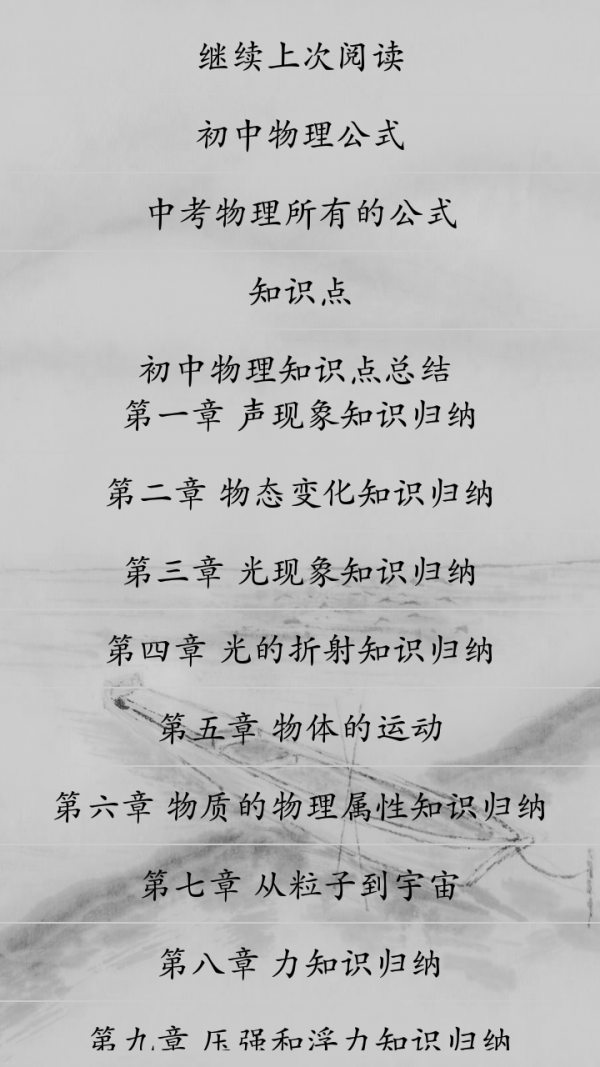 继续上次阅读
初中物理公式
中考物理所有的公式
知识点
初中物理知识点总结
第一章 声现象知识归纳
第二章 物态变化知识归纳
第三章 光现象知识归纳
第四章 光的折射知识归纳
第五章 物体的运动
第六章 物质的物理属性知识归纳
第七章 从粒子到宇宙
第八章 力知识归纳
第九章 压强和浮力知识归纳